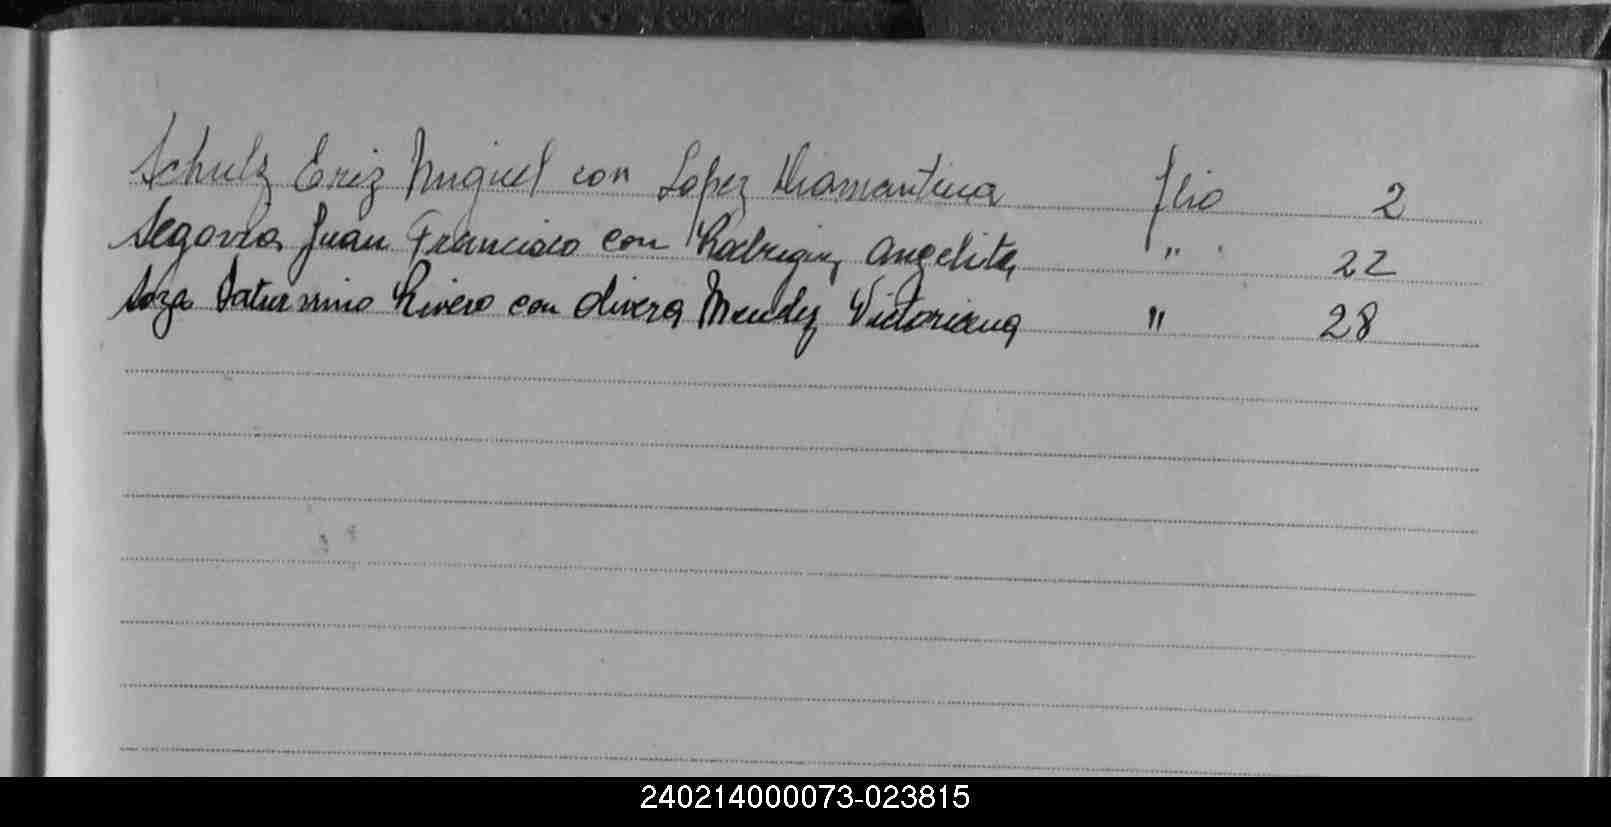 Schulz Eriz Miguel con Lopez Diamantina flio 2
Segovia Juan Francisco con Rodriguez Angelita " 22
Soza Saturnino Rivero con Olivera Mendez Victoriana " 28
240214000073-023815